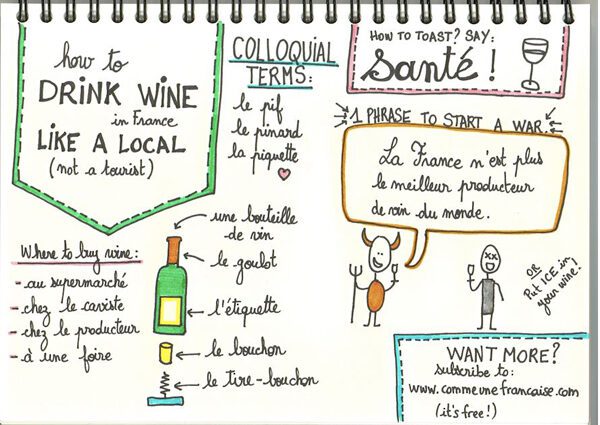 how to
DRINK WINE
in France
LIKE A LOCAL
(not a tourist)
COLLOQUIAL
TERMS:
le pif
le pinard
la piquette
HOW TO TOAST? SAY:
Santé!
1 PHRASE TO START A WAR.
La France n'est plus
le meilleur producteur
de vin du monde.
OR
Put ICE in
your wine!
Where to buy wine:
- au supermarché
- chez le caviste
- chez le producteur
- à une foire
une bouteille
de vin
le goulot
l'étiquette
le bouchon
le tire-bouchon
WANT MORE?
subscribe to:
www.commeunefrancaise.com
(it's free!)